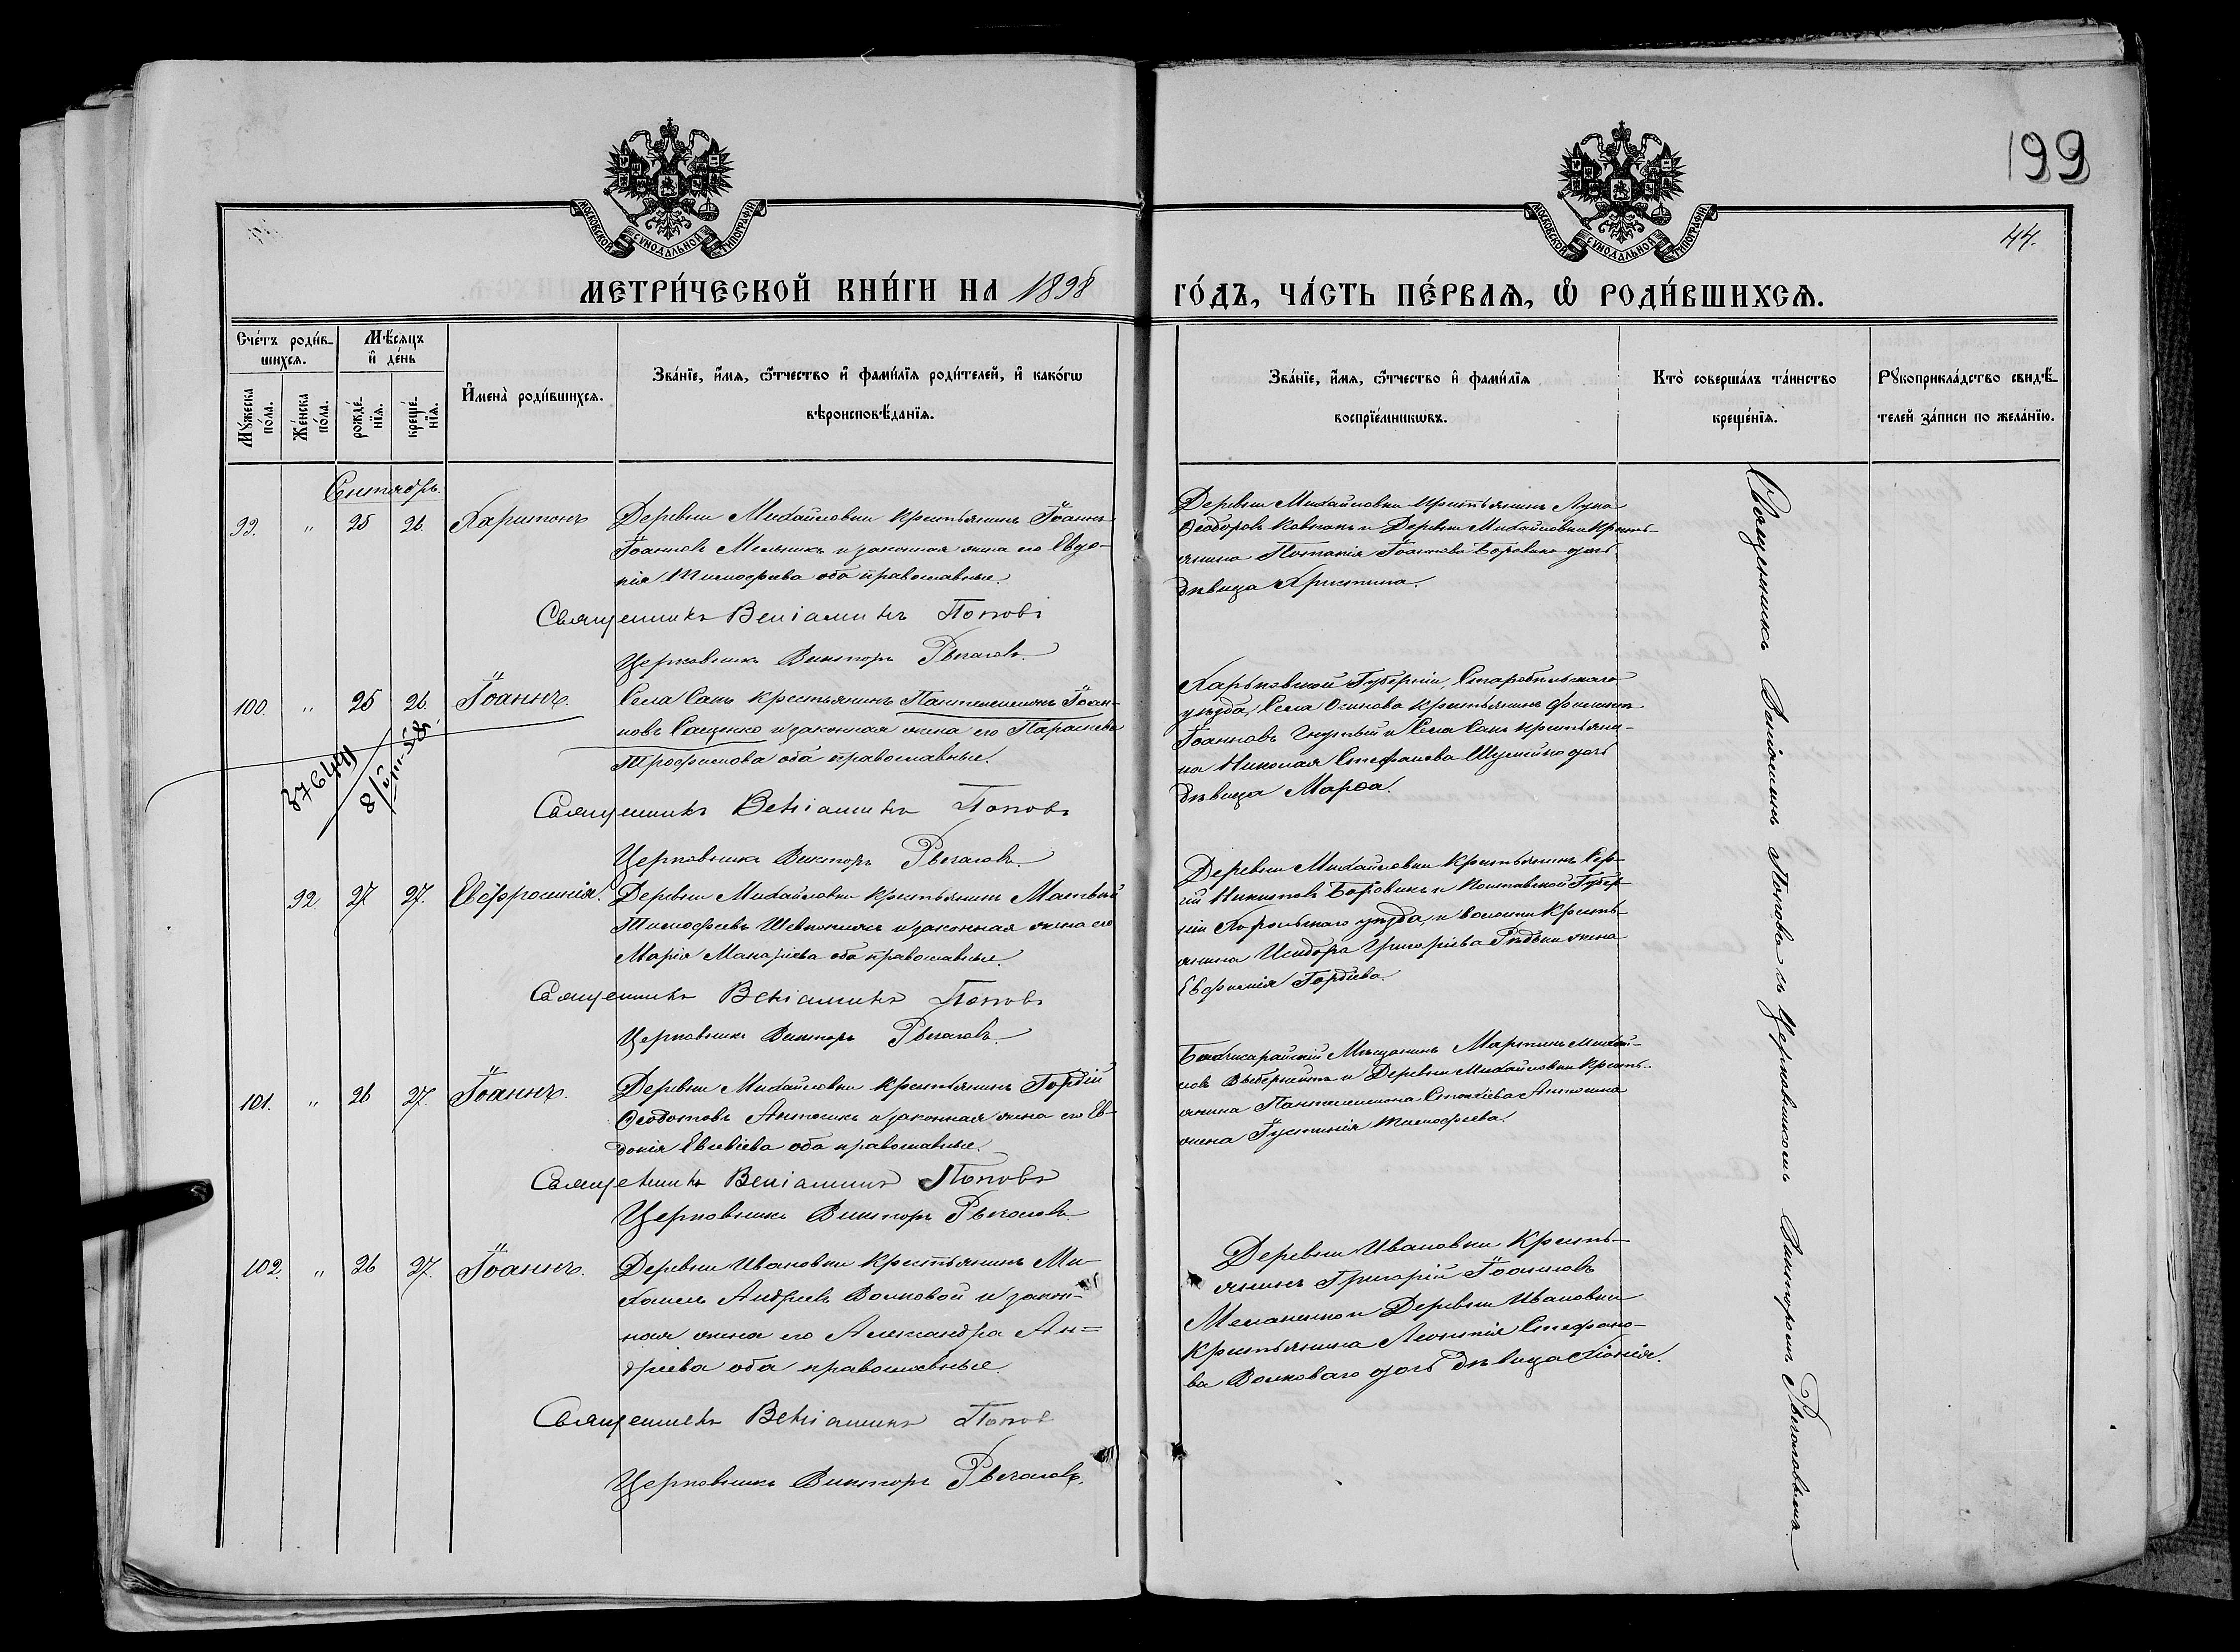 199
44.
МОСКОВСКОЙ СѴНОДАЛЬНОЙ ТИПОГРАФІИ
МОСКОВСКОЙ СѴНОДАЛЬНОЙ ТИПОГРАФІИ
МЕТРИ́ЧЕСКОЙ КНИ́ГИ НА 1898 ГО́ДЪ, ЧА́СТЬ ПЕ́РВАѦ, Ѡ҆ РОДИ́ВШИХСѦ.
Сче́тъ роди́в-
шихсѧ.
Мꙋ́жеска по́ла.
Же́нска по́ла.
Мѣ́сѧцъ и҆ де́нь
рожде́-
нїѧ.
креще́-
нїѧ.
И҆мена̀ роди́вшихсѧ.
Зва́нїе, и҆́мѧ, ѻ҆́тчество и҆ фами́лїѧ роди́телей, и҆ како́гѡ
вѣроисповѣ́данїѧ.
Зва́нїе, и҆́мѧ, ѻ҆́тчество и҆ фами́лїѧ
воспрїе́мникѡвъ.
Кто̀ соверша́лъ та́инство
креще́нїѧ.
Рꙋкоприкла́дство свидѣ́-
телей за́писи по жела́нїю.
Сентябрь.
99. " 25 26. Харитонъ
Деревни Михайловки крестьянинъ Іоаннъ
Іоанновъ Мельникъ и законная жена его Евдо-
кія Тимофеева оба православные.
Священникъ Веніаминъ Поповъ
Церковникъ Викторъ
Деревни Михайловки крестьянинъ Лука
Ѳеодоровъ и Деревни Михайловки кресть-
янина Іоаннова Боровика дочь
дѣвица Христина.
100. " 25 26 Іоаннъ.
Села Сакъ крестьянинъ Пантелеимонъ Іоан-
новъ Саценко и законная жена его Параскева
Трофимова оба православные.
876411
8/VIII-58.
Священникъ Веніаминъ Поповъ
Церковникъ Викторъ
Харьковской Губерніи, Старобѣльскаго
уѣзда, Села Осинова крестьянинъ Филиппъ
Іоанновъ и Села Сакъ крестьяни-
на Николая Стефанова дочь
дѣвица Марѳа.
92 27 27. Евфросинія.
Деревни Михайловки крестьянинъ Матвей
Тимофеевъ и законная жена его
Марія Макаріева оба православные.
Священникъ Веніаминъ Поповъ
Церковникъ Викторъ
Деревни Михайловки крестьянинъ Сер-
гій Никитовъ Боровикъ и Полтавской Губер-
ніи Хорольскаго уѣзда, и волости кресть-
янина Исидора Григоріева Рѣдьки жена
Евфимія Гордѣева.
101. " 26 27. Іоаннъ.
Деревни Михайловки крестьянинъ Гордій
Ѳеодотовъ и законная жена его Ев-
докія Евсевіева оба православные.
Священникъ Веніаминъ Поповъ
Церковникъ Викторъ
Бахчисарайскій Мѣщанинъ Мартинъ Михай-
ловъ и Деревни Михайловки кресть-
янина Пантелеимона
жена Іустинія Тимофеева.
102. " 26 27. Іоаннъ.
Деревни Ивановки крестьянинъ Ми-
хаилъ Андреевъ Волковой и закон-
ная жена его Александра Ан=
дреева оба православные.
Священникъ Веніаминъ Попов
Церковникъ Викторъ
Деревни Ивановки кресть-
янинъ Григорій Іоанновъ
и Деревни Ивановки
крестьянина Леонтія Стефано-
ва Волковаго дочь дѣвица Хіонія.
Священникъ Веніаминъ Поповъ съ Церковникомъ Викторомъ